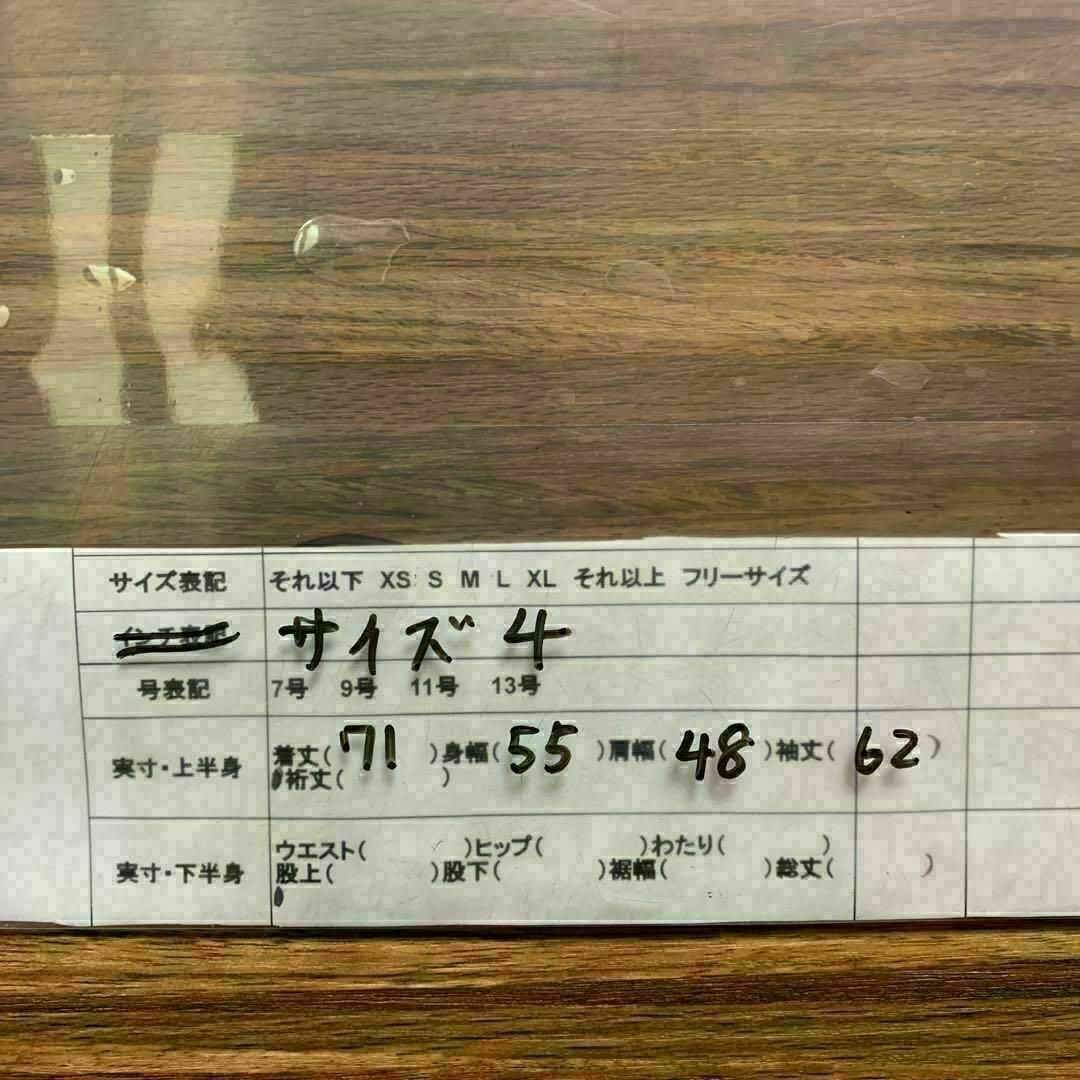 サイズ表記 それ以下 XS S M L XL それ以上 フリーサイズ
サイズ 4
号表記 7号 9号 11号 13号
実寸・上半身 着丈( 71 )身幅( 55 )肩幅( 48 )袖丈( 62 )
裄丈( )
実寸・下半身 ウエスト( )ヒップ( )わたり( )
股上( )股下( )裾幅( )総丈( )